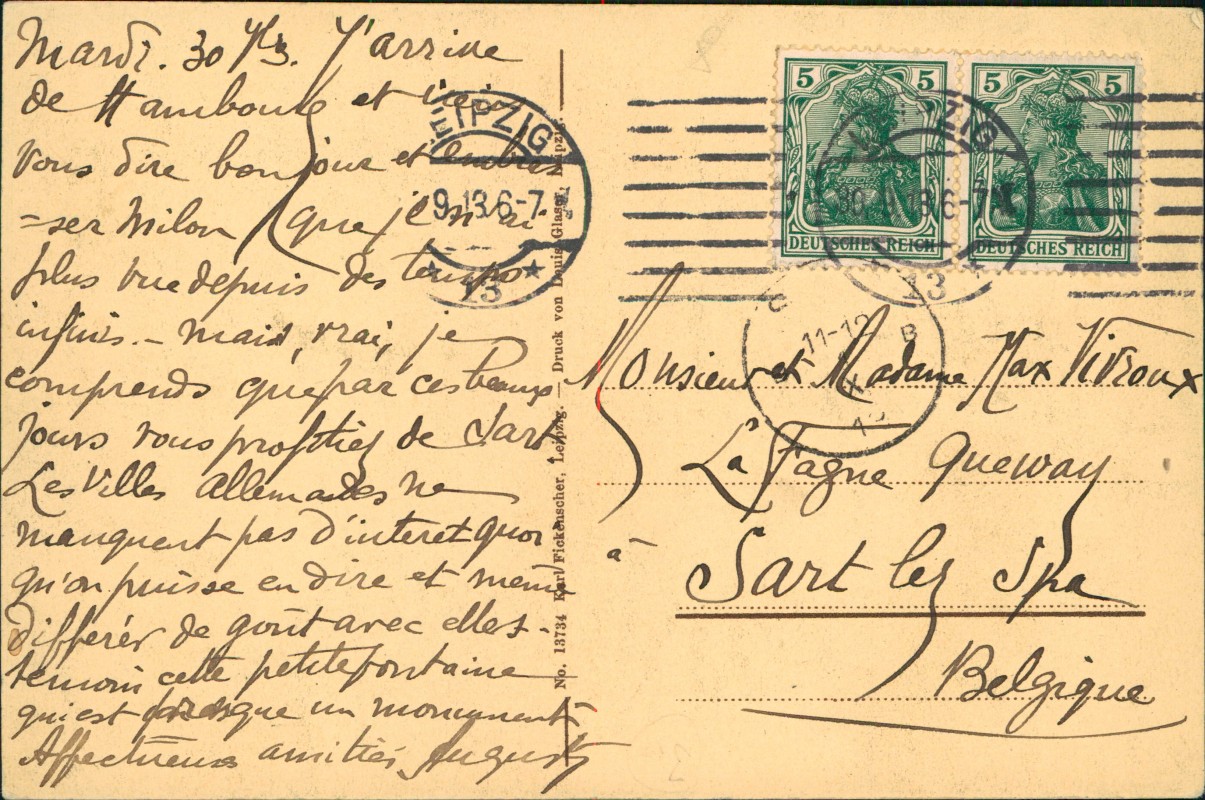 Mardi. 30 J'arrive
de Hambourg et viens
vous dire bonjour et embras
-ser Milon que je n'ai
plus vue depuis des temps
infinis. - mais, vrai, je
comprends que par ces beaux
jours vous profitiez de Sart
Les Villes Allemandes ne
manquent pas d'interet quoi
qu'on puisse en dire et même
différer de goût avec elles -
temoin cette petite fontaine
qui est presque un monument
Affectueuses amitiés, August
LEIPZIG
9.13.6-7
* 13 *
No. 13734 Karl Fickenscher, Leipzig. — Druck von Louis Glaser, Leipzig.
5 5
DEUTSCHES REICH
5 5
DEUTSCHES REICH
LEIPZIG
30.9.13.6-7
13 *
11-12
IX
B
13
Monsieur et Madame Max Vivroux
La Fagne Queway
à Sart lez Spa
Belgique